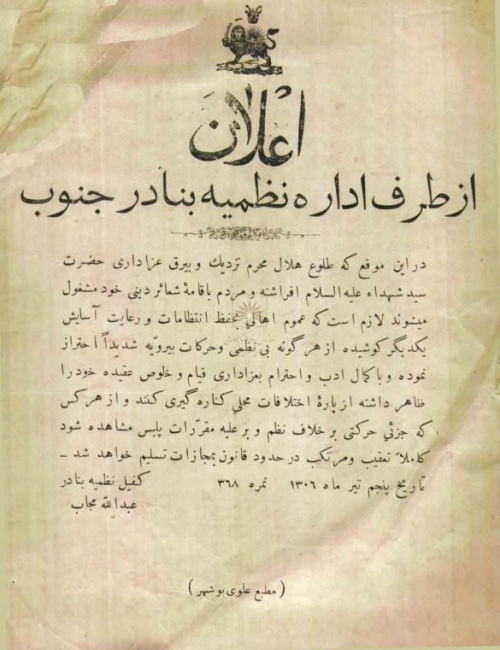 اعلان
از طرف اداره نظمیه بنادر جنوب
در این موقع که طلوع هلال محرم نزدیك و بیرق عزاداری حضرت
سید شهداء علیه السلام افراشته و مردم باقامهٔ شعائر دینی خود مشغول
میشوند لازم است که عموم اهالی بحفظ انتظامات و رعایت آسایش
یکدیگر کوشیده از هر گونه بی نظمی و حرکات بیرویه شدیداً احتراز
نموده و با کمال ادب و احترام بعزاداری قیام و خلوص عقیده خود را
ظاهر داشته از پارهٔ اختلافات محلی کناره گیری کنند و از هر کس
که جزئی حرکتی بر خلاف نظم و بر علیه مقررات پلیس مشاهده شود
کاملاً تعقیب و مرتکب در حدود قانون بمجازات تسلیم خواهد شد ــ
تاریخ پنجم تیر ماه ۱۳۰۶ نمره ۳۶۸ کفیل نظمیه بنادر
عبدالله مجاب
( مطبع علوی بوشهر )